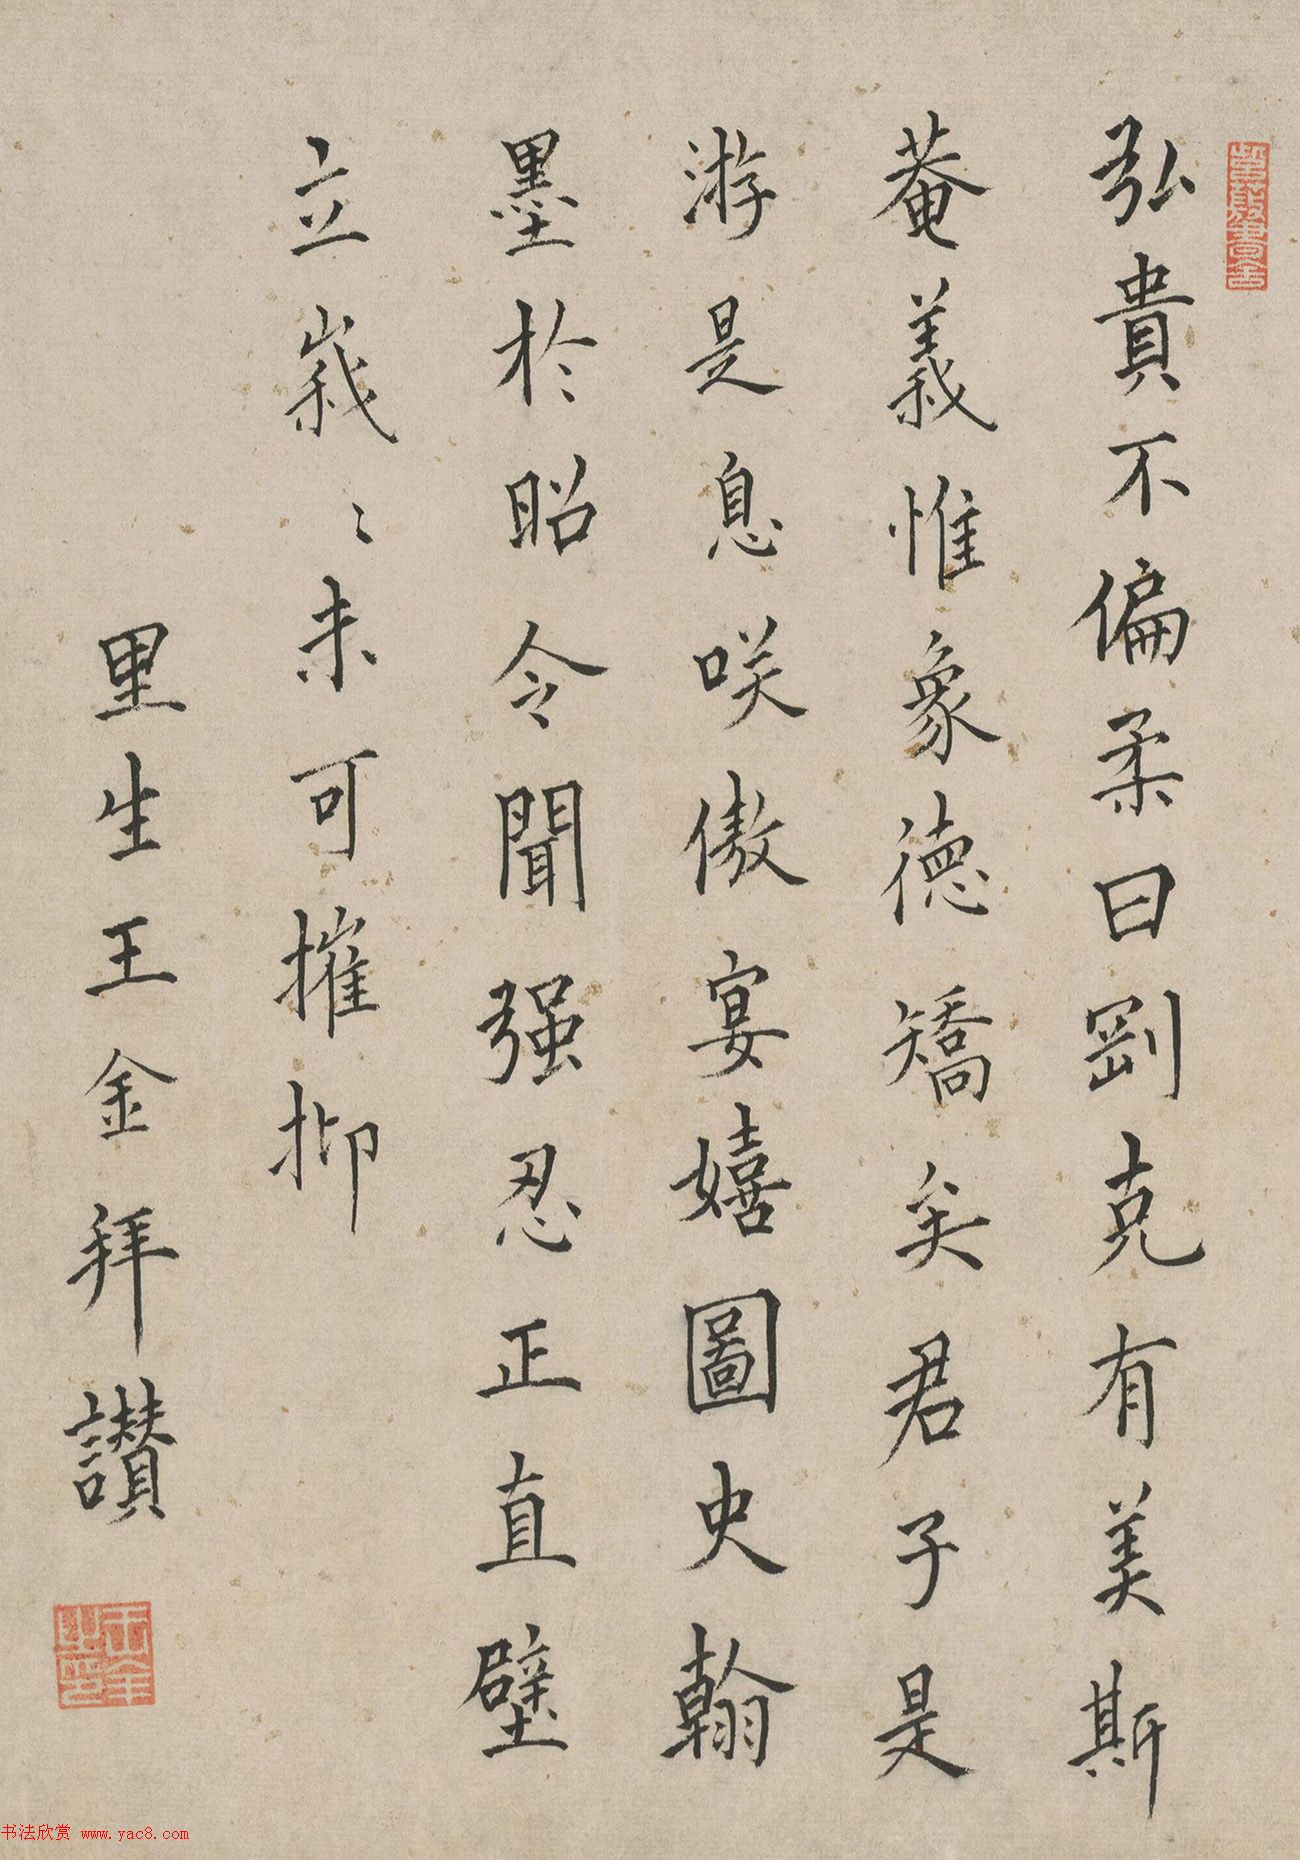 弘貴不偏柔曰剛克有美斯
菴義惟象德矯矣君子是
游是息咲傲宴嬉圖史翰
墨於昭令聞强忍正直壁
立峩〻未可摧抑
里生王金拜讚
書法欣赏 www.yac8.com